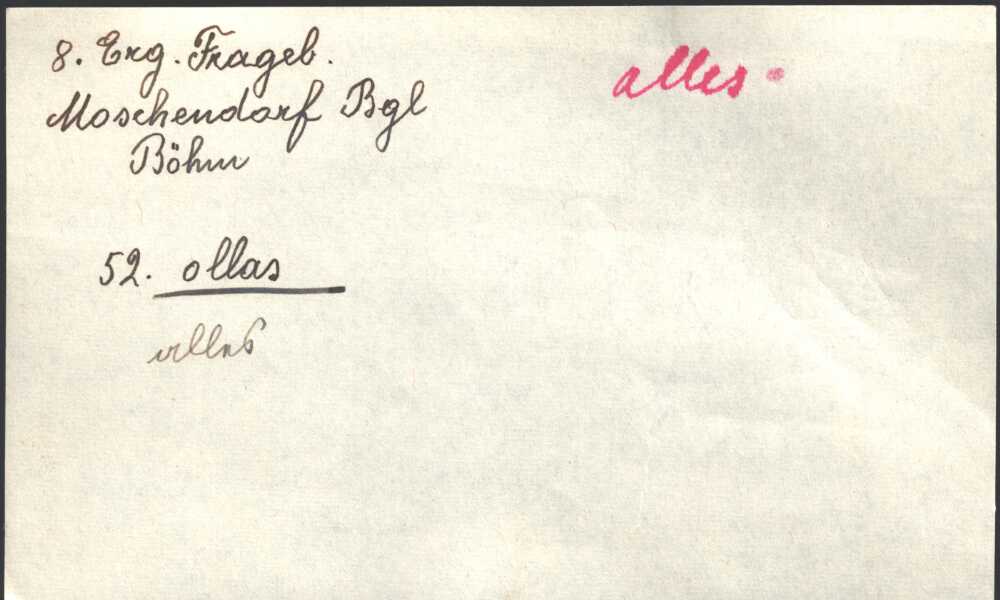 8. Erg. Frageb.
alles.
Moschendorf Bgl
Böhm
52. ollas
alles